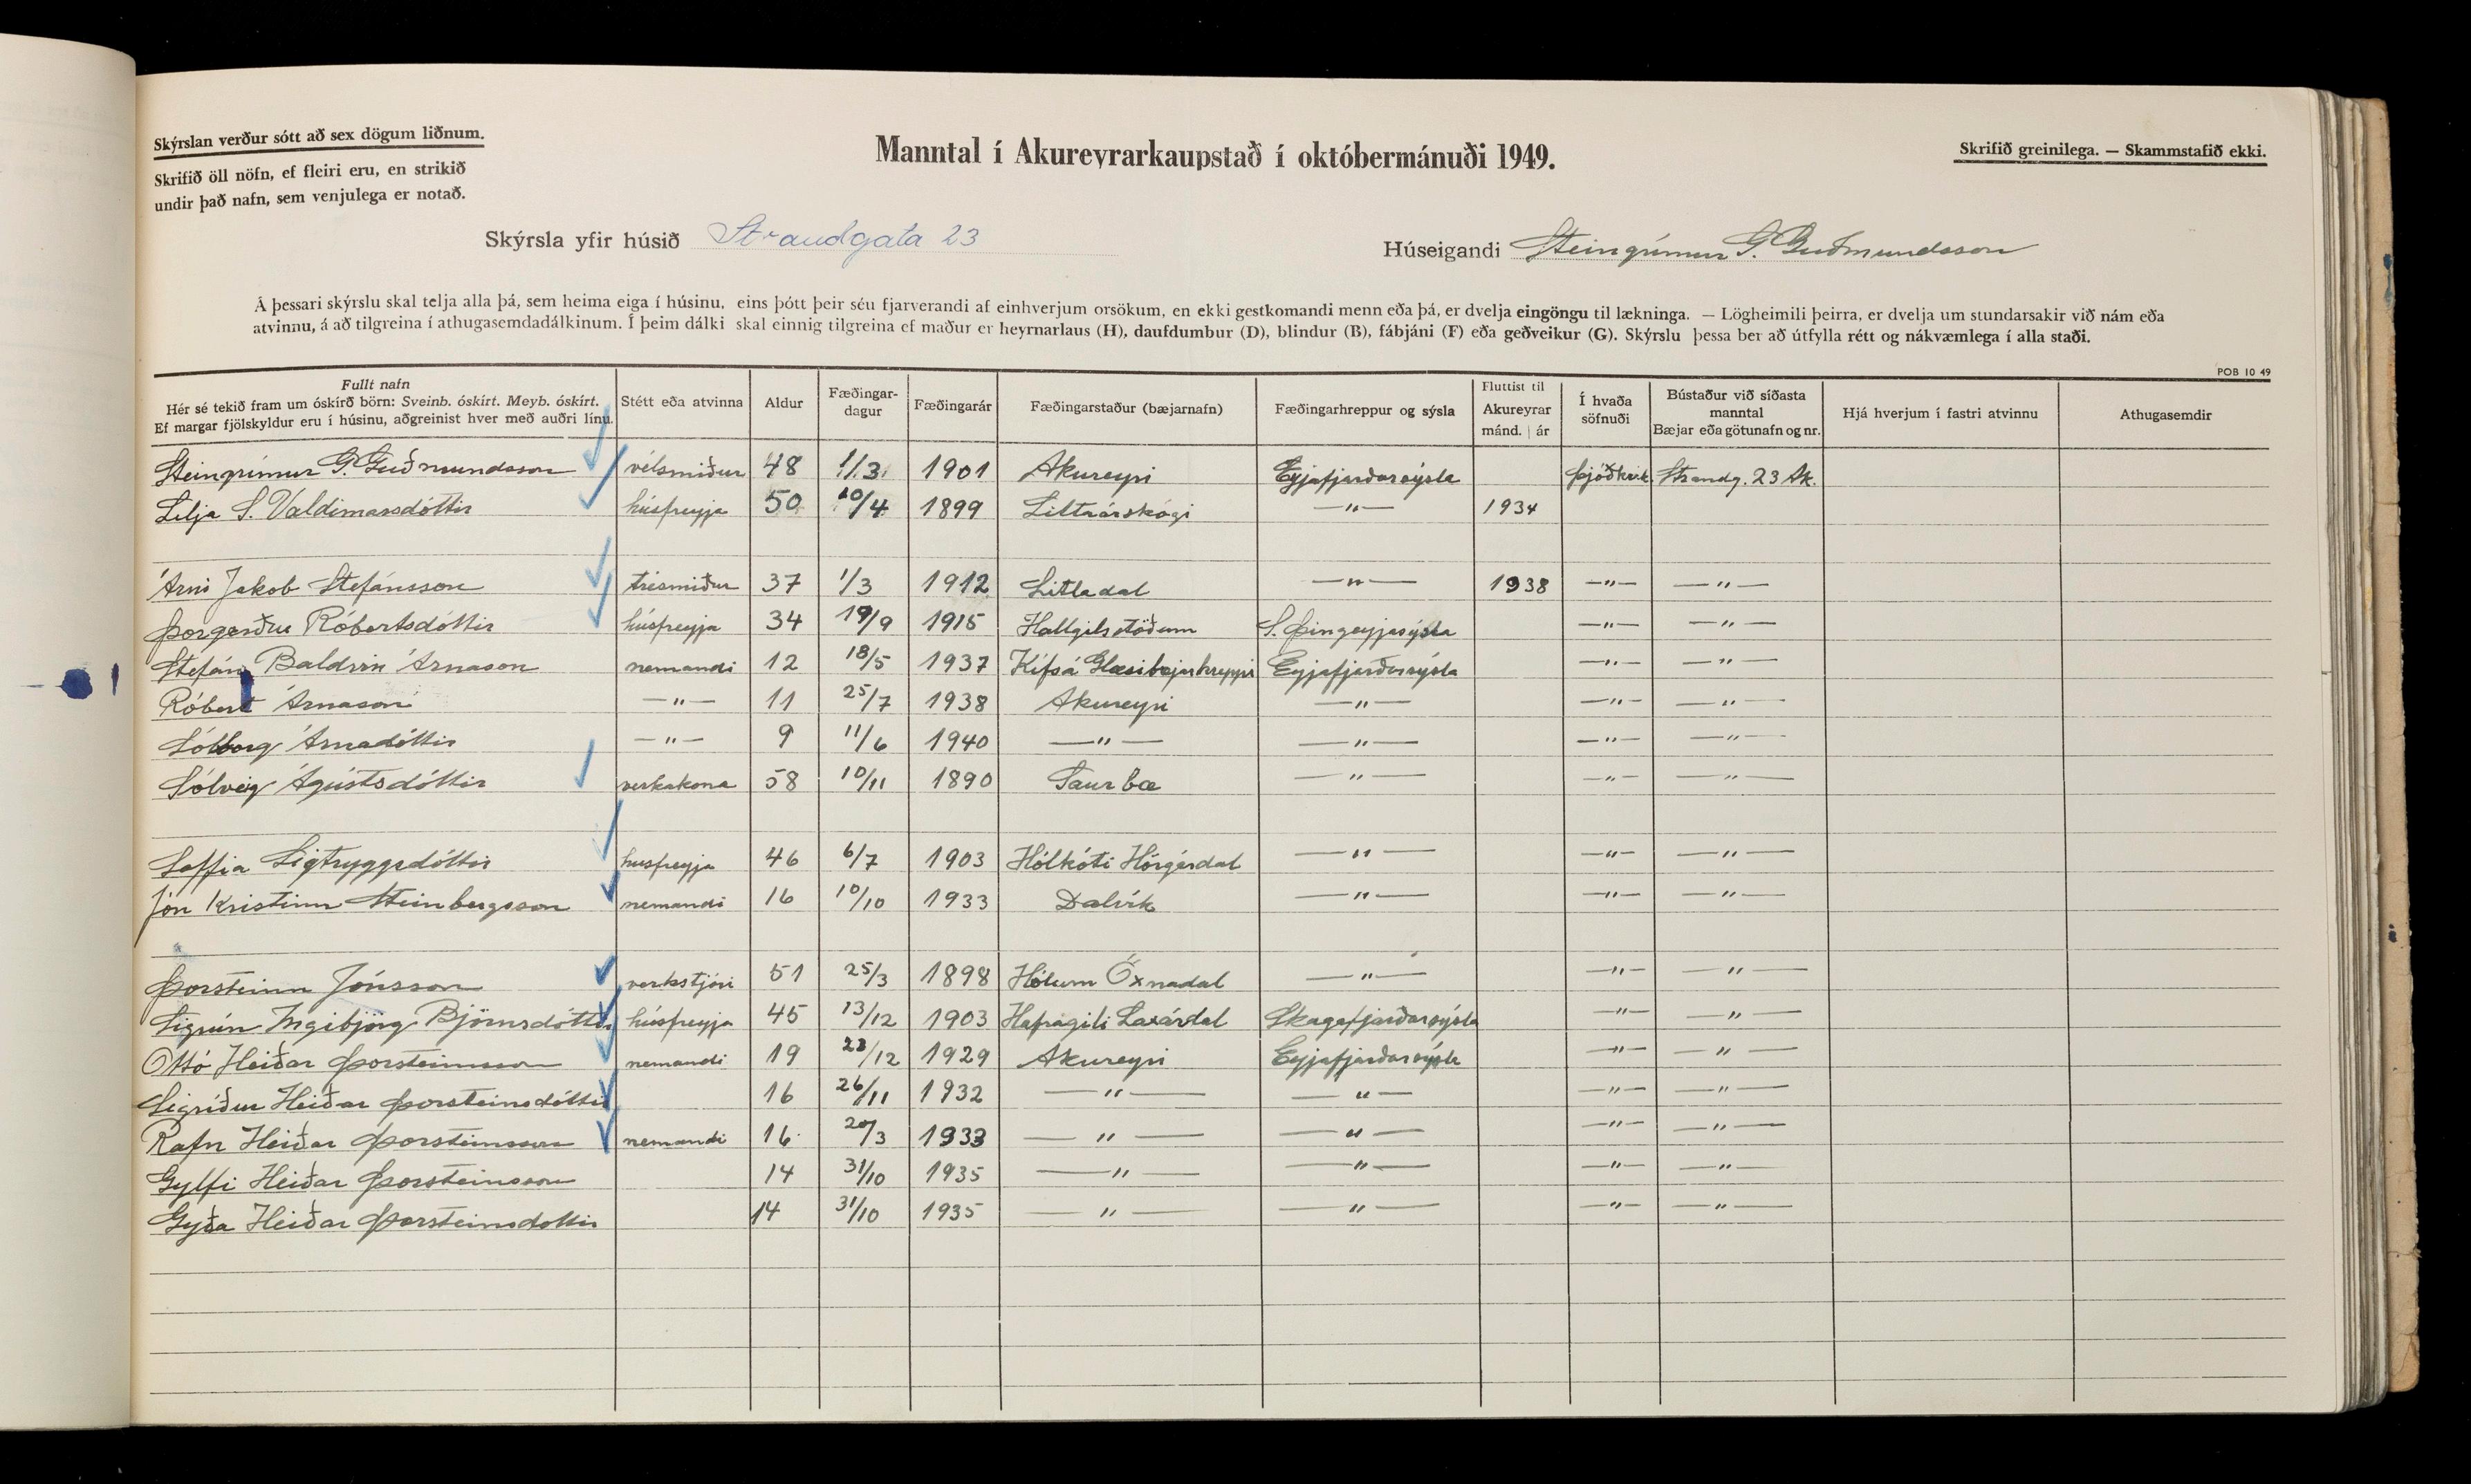 Skýrslan verður sótt að sex dögum liðnum.
Skrifið öll nöfn, ef fleiri eru, en strikið
undir það nafn, sem venjulega er notað.
Manntal í Akureyrarkaupstað í októbermánuði 1949.
Skrifið greinilega. — Skammstafið ekki.
Skýrsla yfir húsið Strandgata 23
Húseigandi Steingrímur G. Guðmundsson
Á þessari skýrslu skal telja alla þá, sem heima eiga í húsinu, eins þótt þeir séu fjarverandi af einhverjum orsökum, en ekki gestkomandi menn eða þá, er dvelja eingöngu til lækninga. — Lögheimili þeirra, er dvelja um stundarsakir við nám eða
atvinnu, á að tilgreina í athugasemdadálkinum. Í þeim dálki skal einnig tilgreina ef maður er heyrnarlaus (H), daufdumbur (D), blindur (B), fábjáni (F) eða geðveikur (G). Skýrslu þessa ber að útfylla rétt og nákvæmlega í alla staði.
POB 10 49
Fullt nafn
Hér sé tekið fram um óskírð börn: Sveinb. óskírt. Meyb. óskírt.
Ef margar fjölskyldur eru í húsinu, aðgreinist hver með auðri línu.
Stétt eða atvinna
Aldur
Fæðingar-
dagur
Fæðingarár
Fæðingarstaður (bæjarnafn)
Fæðingarhreppur og sýsla
Fluttist til
Akureyrar
mánd. | ár
Í hvaða
söfnuði
Bústaður við síðasta
manntal
Bæjar eða götunafn og nr.
Hjá hverjum í fastri atvinnu
Athugasemdir
Steingrímur G. Guðmundsson vélsmiður 48 1/3 1901 Akureyri Eyjafjarðarsýsla Þjóðkirk. Strandg. 23 Ak.
Lilja S. Valdimarsdóttir húsfreyja 50 20/4 1899 Litlaárskógi —"— 1934
Árni Jakob Stefánsson trésmiður 37 1/3 1912 Litladal —"— 1938 —"— —"—
Þorgerður Róbertsdóttir húsfreyja 34 19/9 1915 Hallgilsstöðum S. Þingeyjasýsla —"— —"—
Stefán Baldvin Árnason nemandi 12 18/5 1937 Kífsá Glæsibæjarhreppi Eyjafjarðarsýsla —"— —"—
Róbert Árnason —"— 11 25/7 1938 Akureyri —"— —"— —"—
Sólborg Árnadóttir —"— 9 11/6 1940 —"— —"— —"— —"—
Sólveig Ágústsdóttir verkakona 58 10/11 1890 Saurbæ —"— —"— —"—
Soffia Sigtryggsdóttir husfreyja 46 6/7 1903 Hólkóti Hörgárdal —"— —"— —"—
Jón Kristinn Steinbergsson nemandi 16 10/10 1933 Dalvík —"— —"— —"—
Þorsteinn Jónsson verkstjóri 51 25/3 1898 Hólum Öxnadal —"— —"— —"—
Sigrún Ingibjörg Björnsdóttir húsfreyja 45 13/12 1903 Hafragili Laxárdal Skagafjarðarsýsla —"— —"—
Ottó Heiðar Þorsteinsson nemandi 19 23/12 1929 Akureyri Eyjafjarðarsýsla —"— —"—
Sigríður Heiðar Þorsteinsdóttir 16 26/11 1932 —"— —"— —"— —"—
Rafn Heiðar Þorsteinsson nemandi 16 20/3 1933 —"— —"— —"— —"—
Gylfi Heiðar Þorsteinsson 14 31/10 1935 —"— —"— —"— —"—
Gyða Heiðar Þorsteinsdottir 14 31/10 1935 —"— —"— —"— —"—